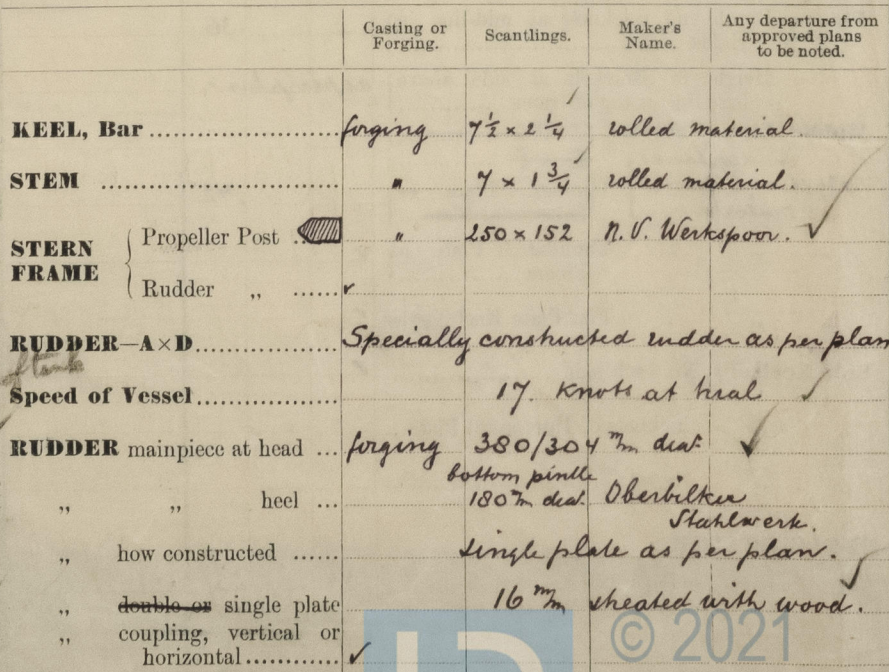 Casting or Forging. Scantlings. Maker's Name. Any departure from approved plans to be noted.
KEEL, Bar forging 7½ × 2¼ rolled material.
STEM " 7 × 1¾ rolled material.
STERN FRAME { Propeller Post " 250 × 152 N.V. Werkspoor.
Rudder "
RUDDER—A×D Specially constructed rudder as per plan
Speed of Vessel 17. Knots at trial
RUDDER mainpiece at head forging 380/304 m/m diar.
bottom pintle
" " heel 180 m/m diar. Oberbilker
Stahlwerk.
" how constructed single plate as per plan.
" double or single plate 16 m/m sheated with wood.
" coupling, vertical or
horizontal
© 2021